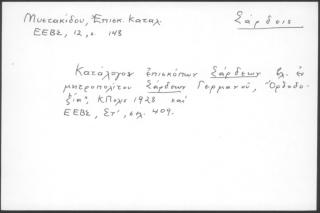 Μυστακίδου, Ἐπισκ. Καταλ. Σάρδεις
ΕΕΒΣ, 12, σ. 143
Κατάλογον ἐπισκόπων Σάρδεων βλ. ἐν
μητροπολίτου Σάρδεων Γερμανοῦ, "Ὀρθοδο-
ξία", Κ.Πολις 1928 καὶ
ΕΕΒΣ, Στ', σελ. 409.